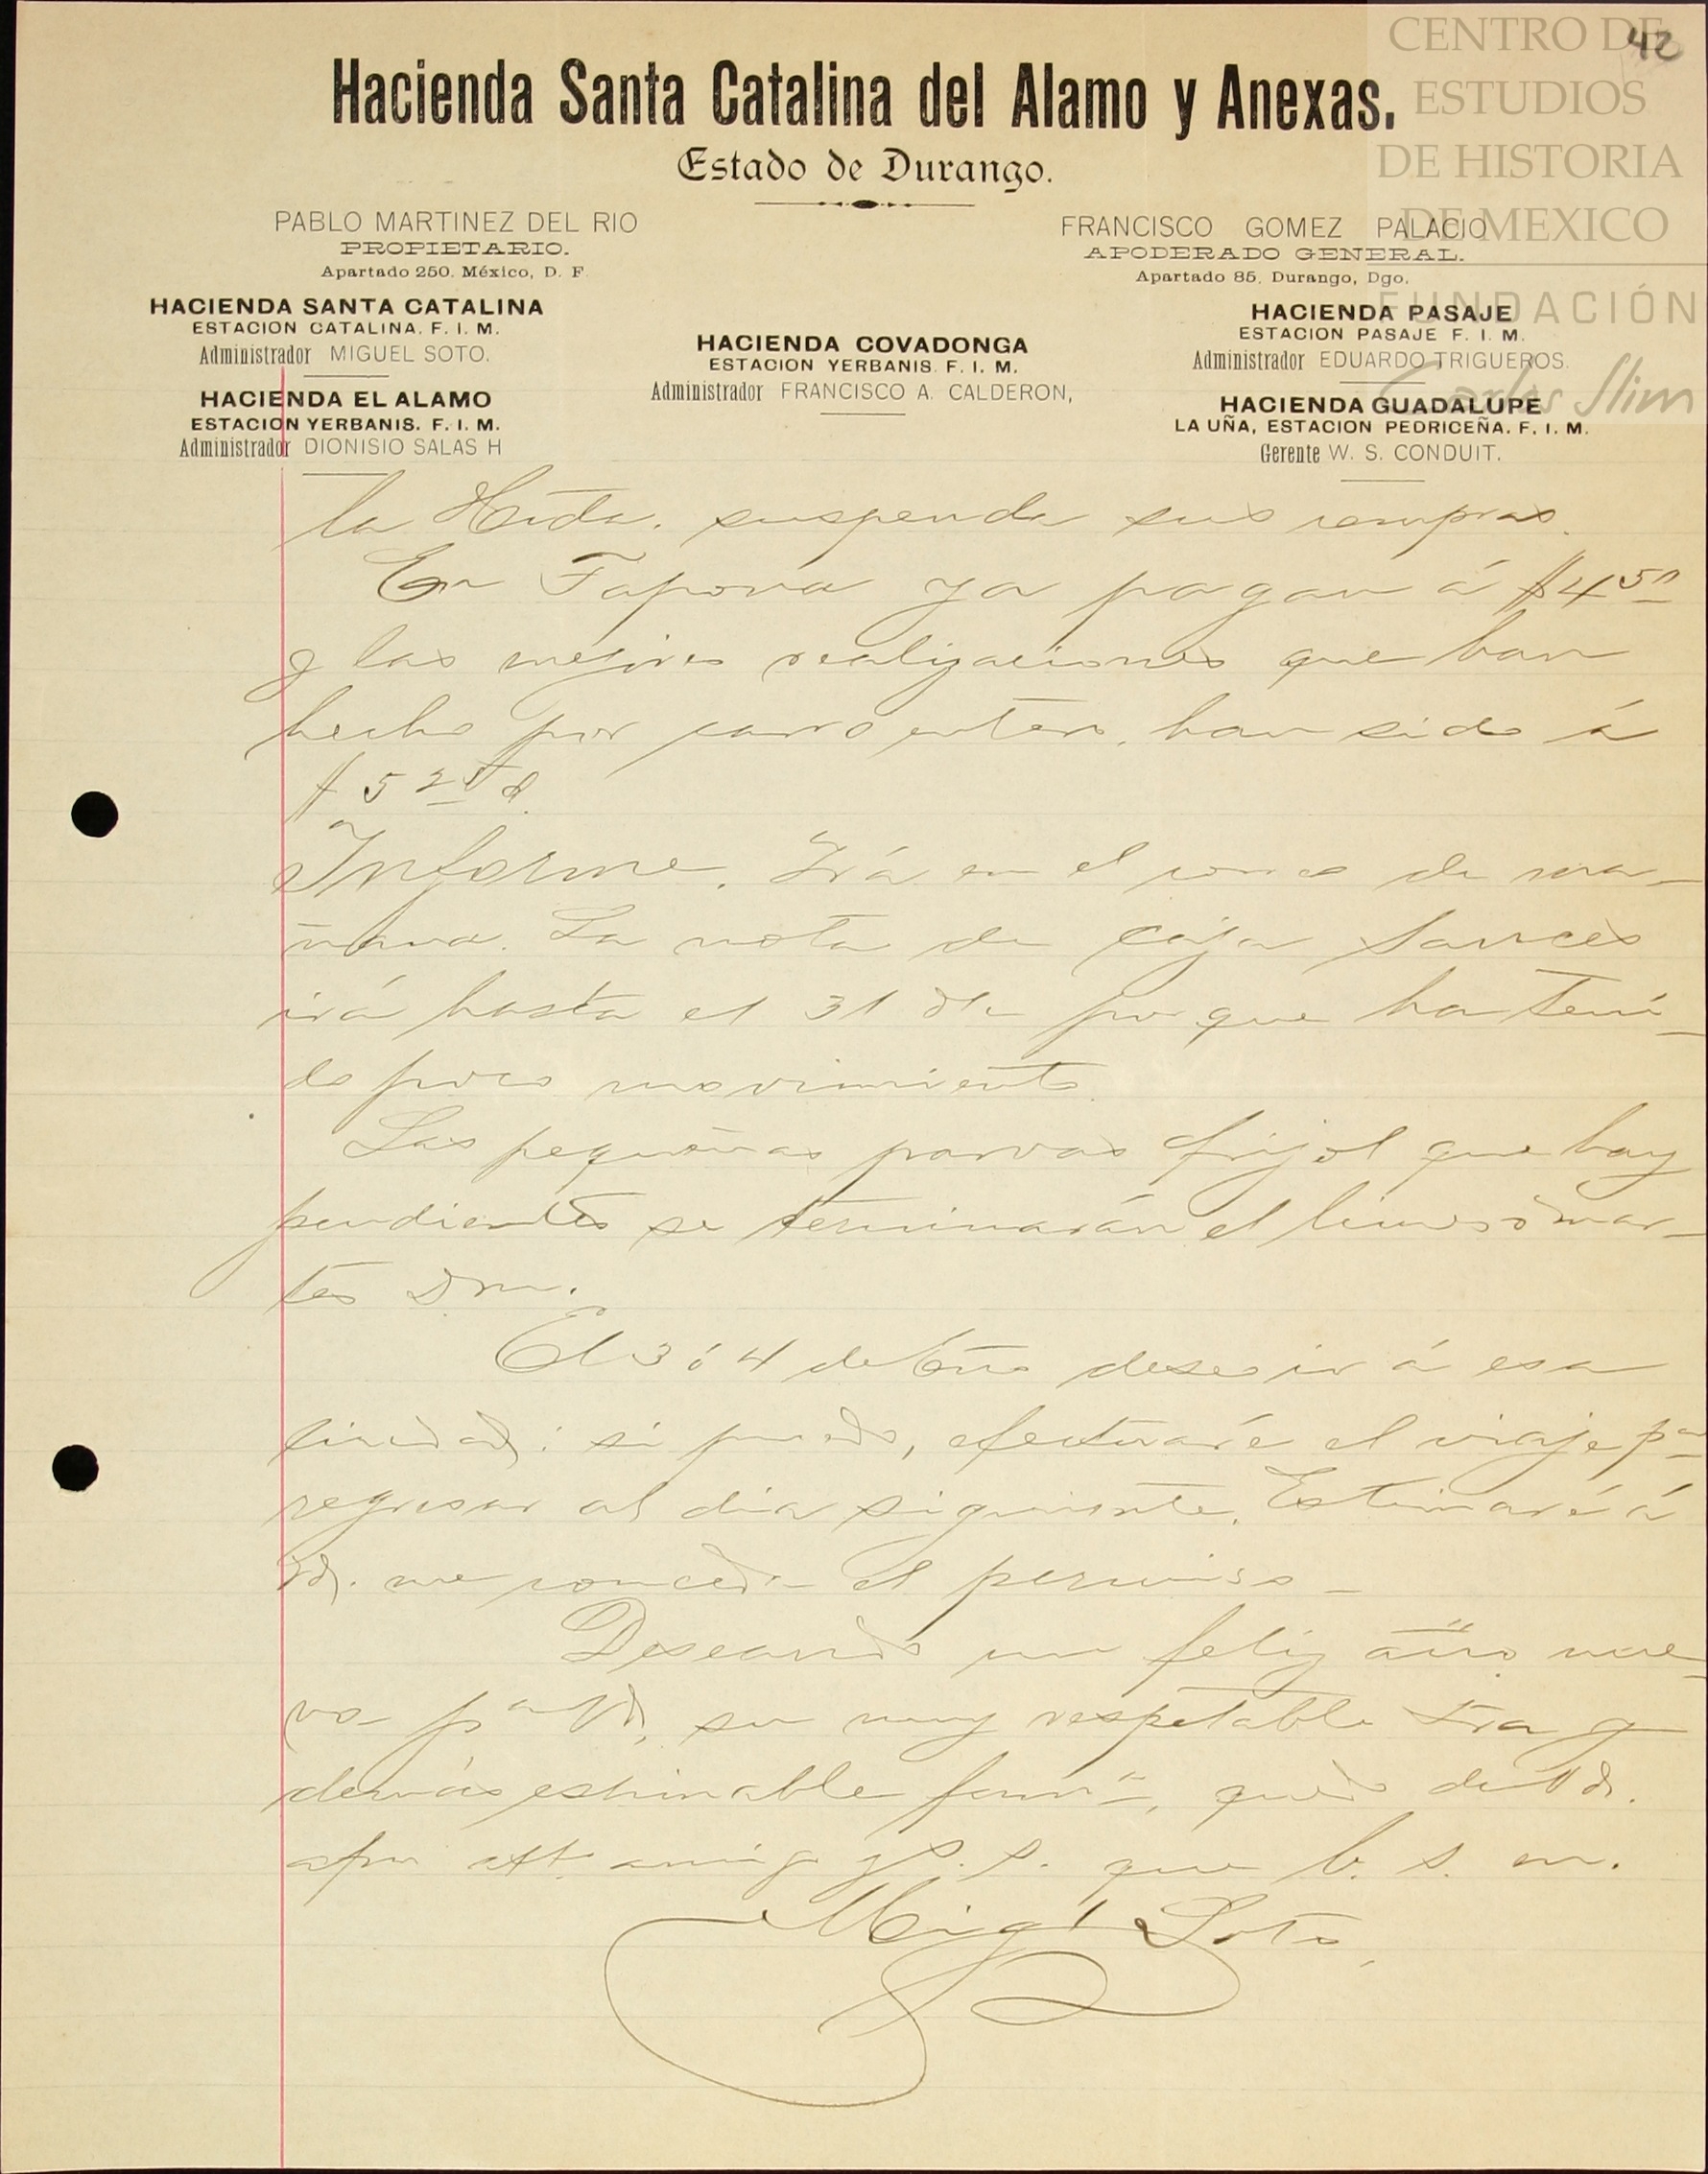 42
CENTRO DE
ESTUDIOS
DE HISTORIA
DE MEXICO
FUNDACIÓN
Carlos Slim
Hacienda Santa Catalina del Alamo y Anexas.
Estado de Durango.
PABLO MARTINEZ DEL RIO
PROPIETARIO.
Apartado 250. México, D. F.
FRANCISCO GOMEZ PALACIO
APODERADO GENERAL.
Apartado 85, Durango, Dgo.
HACIENDA SANTA CATALINA
ESTACION CATALINA. F. I. M.
Administrador MIGUEL SOTO.
HACIENDA EL ALAMO
ESTACION YERBANIS. F. I. M.
Administrador DIONISIO SALAS H
HACIENDA COVADONGA
ESTACION YERBANIS. F. I. M.
Administrador FRANCISCO A. CALDERON,
HACIENDA PASAJE
ESTACION PASAJE F. I. M.
Administrador EDUARDO TRIGUEROS.
HACIENDA GUADALUPE
LA UÑA, ESTACION PEDRICEÑA. F. I. M.
Gerente W. S. CONDUIT.
la Hcda. suspenda sus compras.
En ya pagan á $4 50
y las mejores realizaciones que han
hecho por carro entero, han sido á
$5 25
Informe. Irá en el correo de ma-
ñana. La nota de caja Sauces
irá hasta el 31 porque ha teni-
do poco movimiento.
Las pequeñas parvas frijol que hay
pendientes se terminarán el lunes ó mar-
tes D. m.
El 3 ó 4 de Eno deseo ir á esa
ciudad; si puedo, efectuaré el viaje pa
regresar al dia siguiente. Estimaré á
Vd. me conceda el permiso-
Deseando un feliz año nue-
vo pa Vd, su muy respetable Sra y
demás estimable fama, quedo de Vd.
afmo att. amigo y S. S. que b. s. m.
Migl Soto,